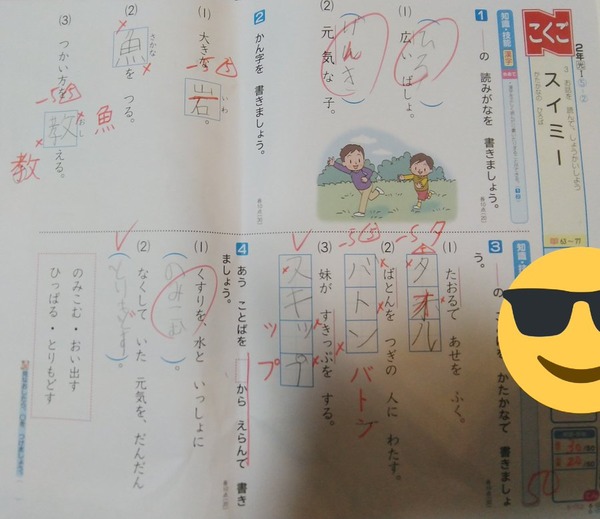 こくご
2年
3 お話を 読んで、しょうかいしよう
スイミー
知識・技能
漢字
1 ――の 読みがなを 書きましょう。
(1) 広い ばしょ。
ひろ
(2) 元気な 子。
げんき
2 かん字を 書きましょう。
(1) 大きな 岩。
いわ
-5
(2) 魚を つる。
さかな
魚
(3) つかい方を 教える。
おし
-5
教
3
知識・技
かたかなで 書きましょう。
(1) たおるで あせを ふく。
タオル
-5
タ
(2) ばとんを つぎの 人に わたす。
バトン
-5
バトン
(3) 妹が すきっぷを する。
スキップ
ップ
4 あう ことばを から えらんで 書きましょう。
(1) くすりを、水と いっしょに
(のみこむ)。
(2) なくして いた 元気を、だんだん
(とりもどす)。
のみこむ・おい出す
ひっぱる・とりもどす
50